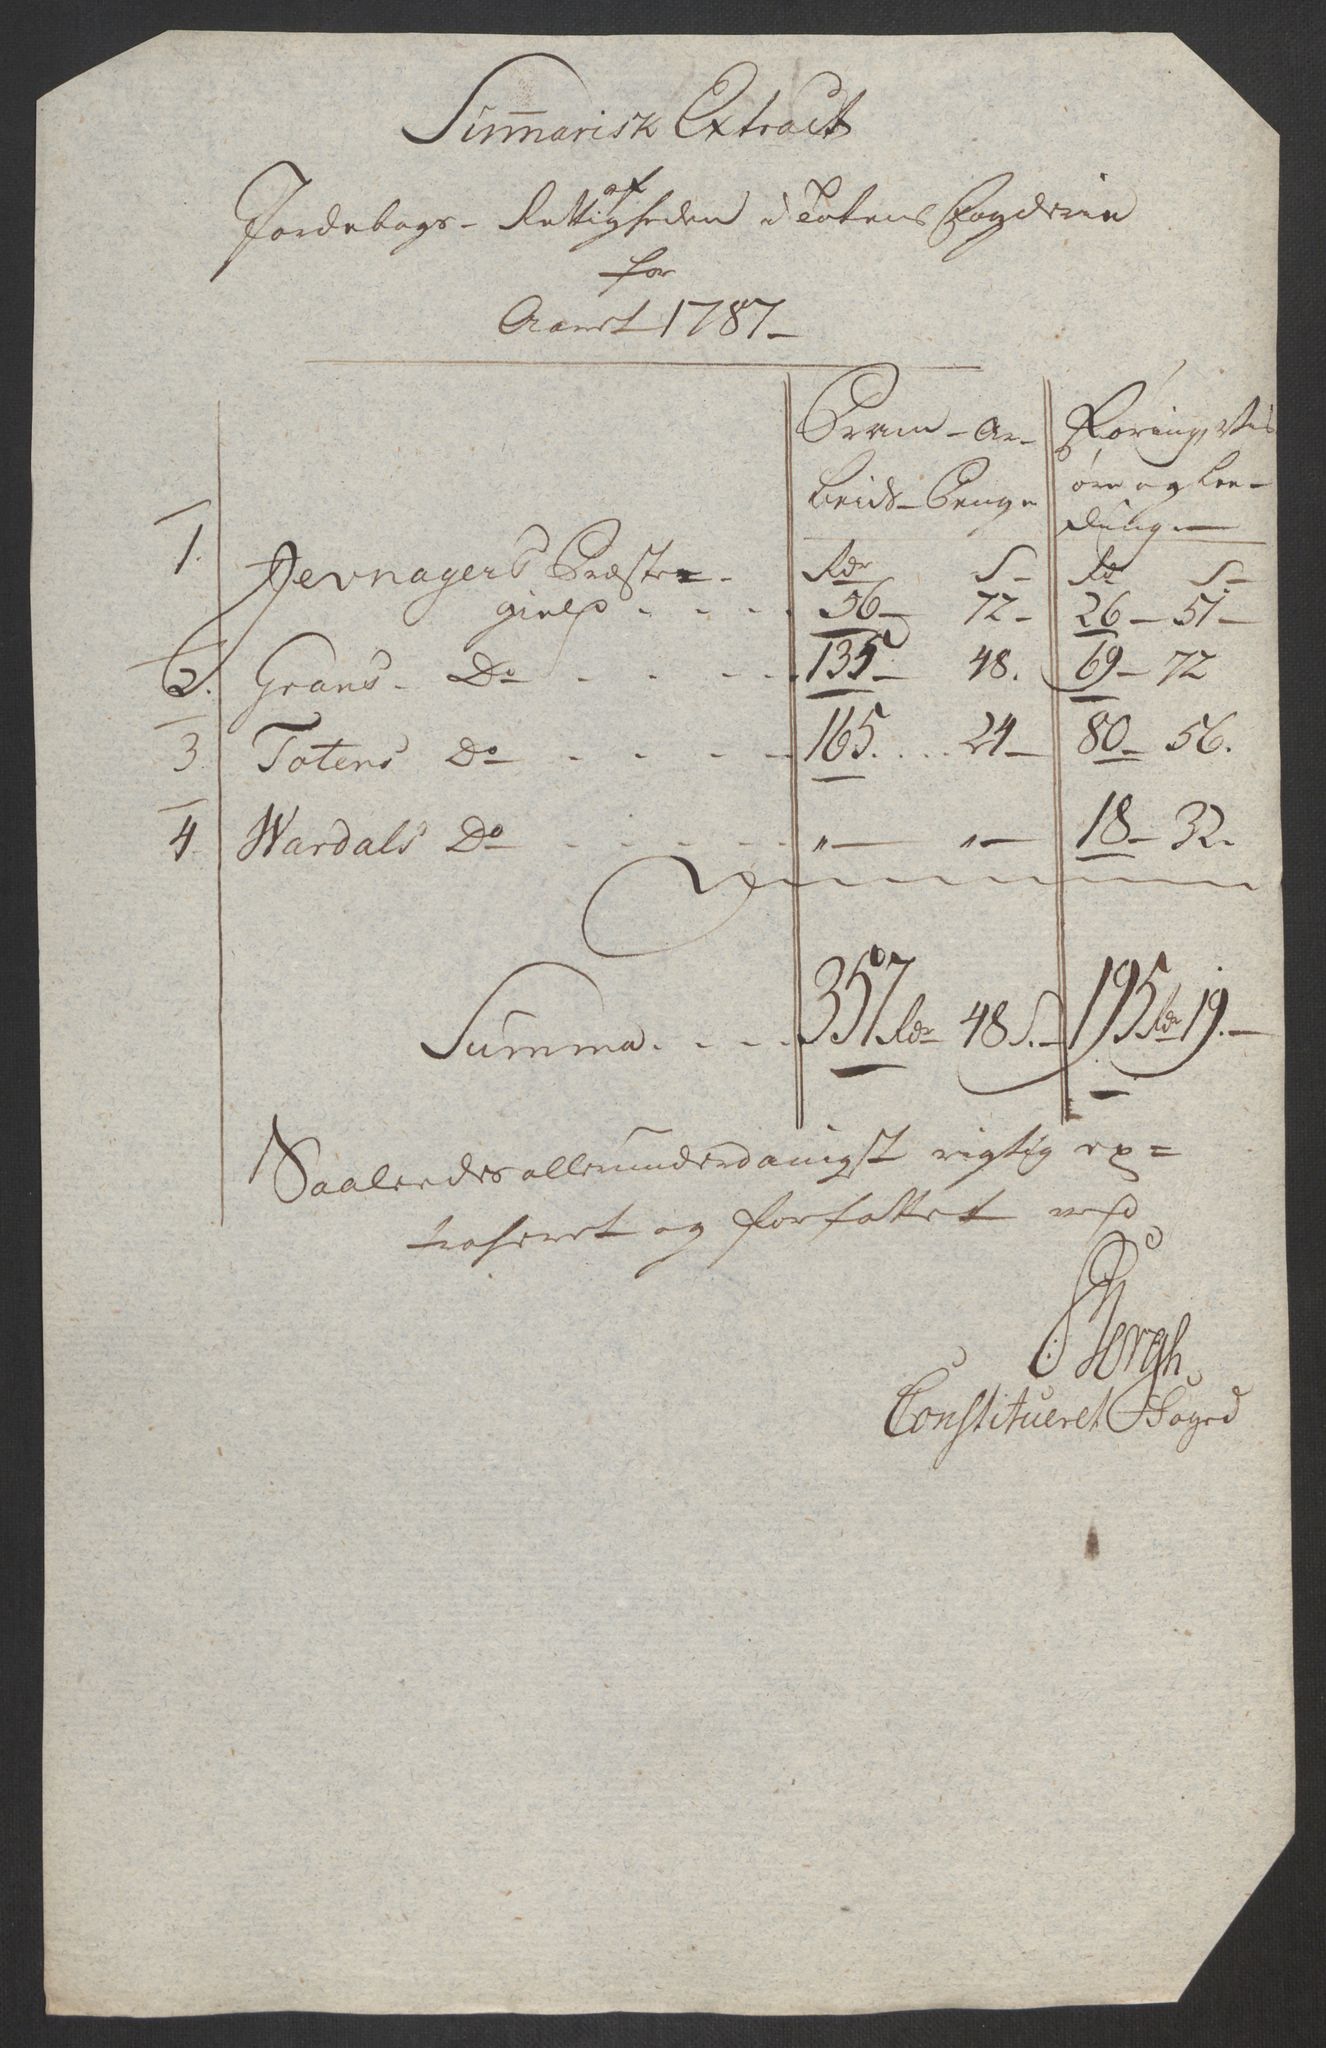 Sum̅arisk Extract
af
Jordebogs-Rettigheden i Totens Fogderie
for
Aaret 1787
Pram-Ar-
beids-Penge
Foring, Vis
øre og Lee-
dinge
1. Jevnagers Præste-
Rdr S Rd S
gield . . . . 56 - 72 - 26 - 51 -
2. Grans Do . . . . 135 - 48. 69 - 72
3 Totens Do . . . . 165 . . 24 - 80 - 56.
4. Wardals Do . . . . " - " - 18 - 32.
Summa . . . . 357 Rdr 48 S. - 195 Rdr 19. -
Saaledes allerunderdanigst rigtig ex=
traheret og forfattet ved
Borgh
Constitueret Foged